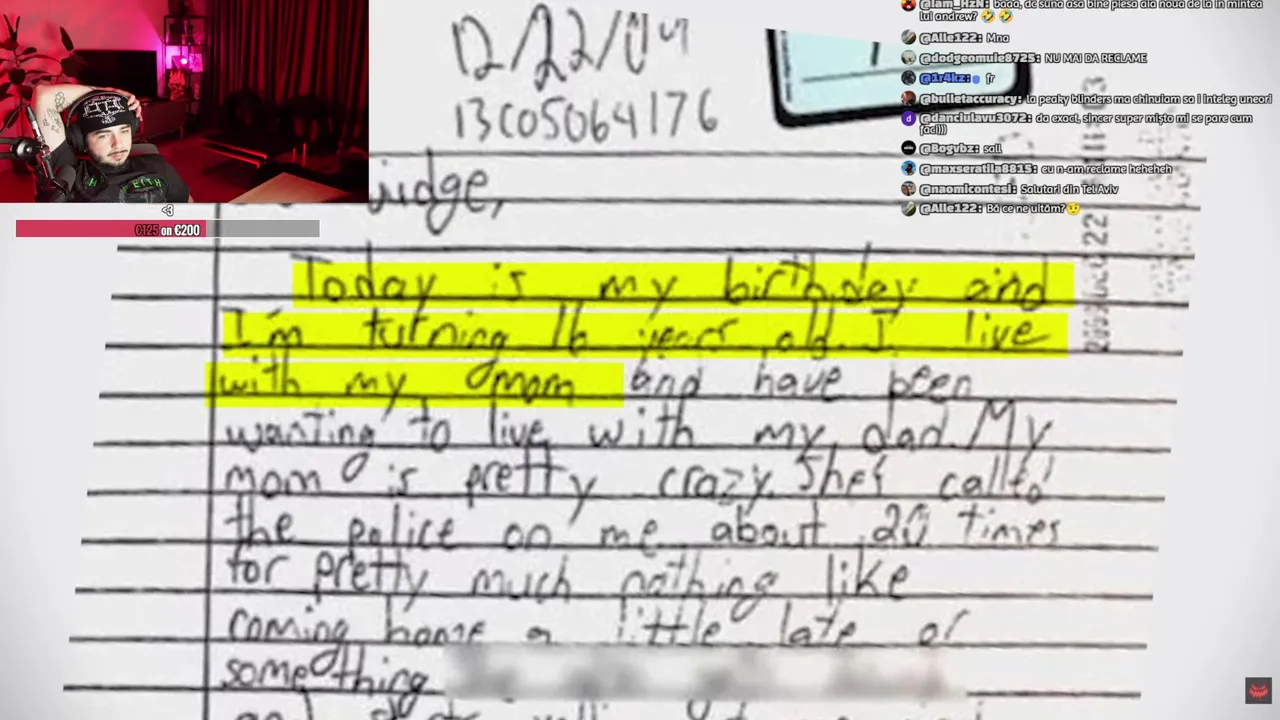 12/22/04
13C05064176
Judge,
Today is my birthday and
I'm turning 16 years old. I live
with my mom and have been
wanting to live with my dad. My
mom is pretty crazy. She's called
the police on me about 20 times
for pretty much nothing like
coming home a little late or
something
<3
€125 on €200
@iam_HzN: baaa, ac suna asa bine piesa aia noua de la in mintea
lui andrew? 🤣 🤣
@Alle122: Mna
@dodgeomule8725: NU MAI DA RECLAME
@1r4kz: fr
@bulletaccuracy: la peaky blinders ma chinuiam sa i inteleg uneori
@danciulavu3072: da exact, sincer super mișto mi se pare cum
faci)))
@Bogvbz: sall
@maxseratila8815: eu n-am reclame heheheh
@naomicontesi: Salutari din Tel Aviv
@Alle122: Bă ce ne uităm?🤨